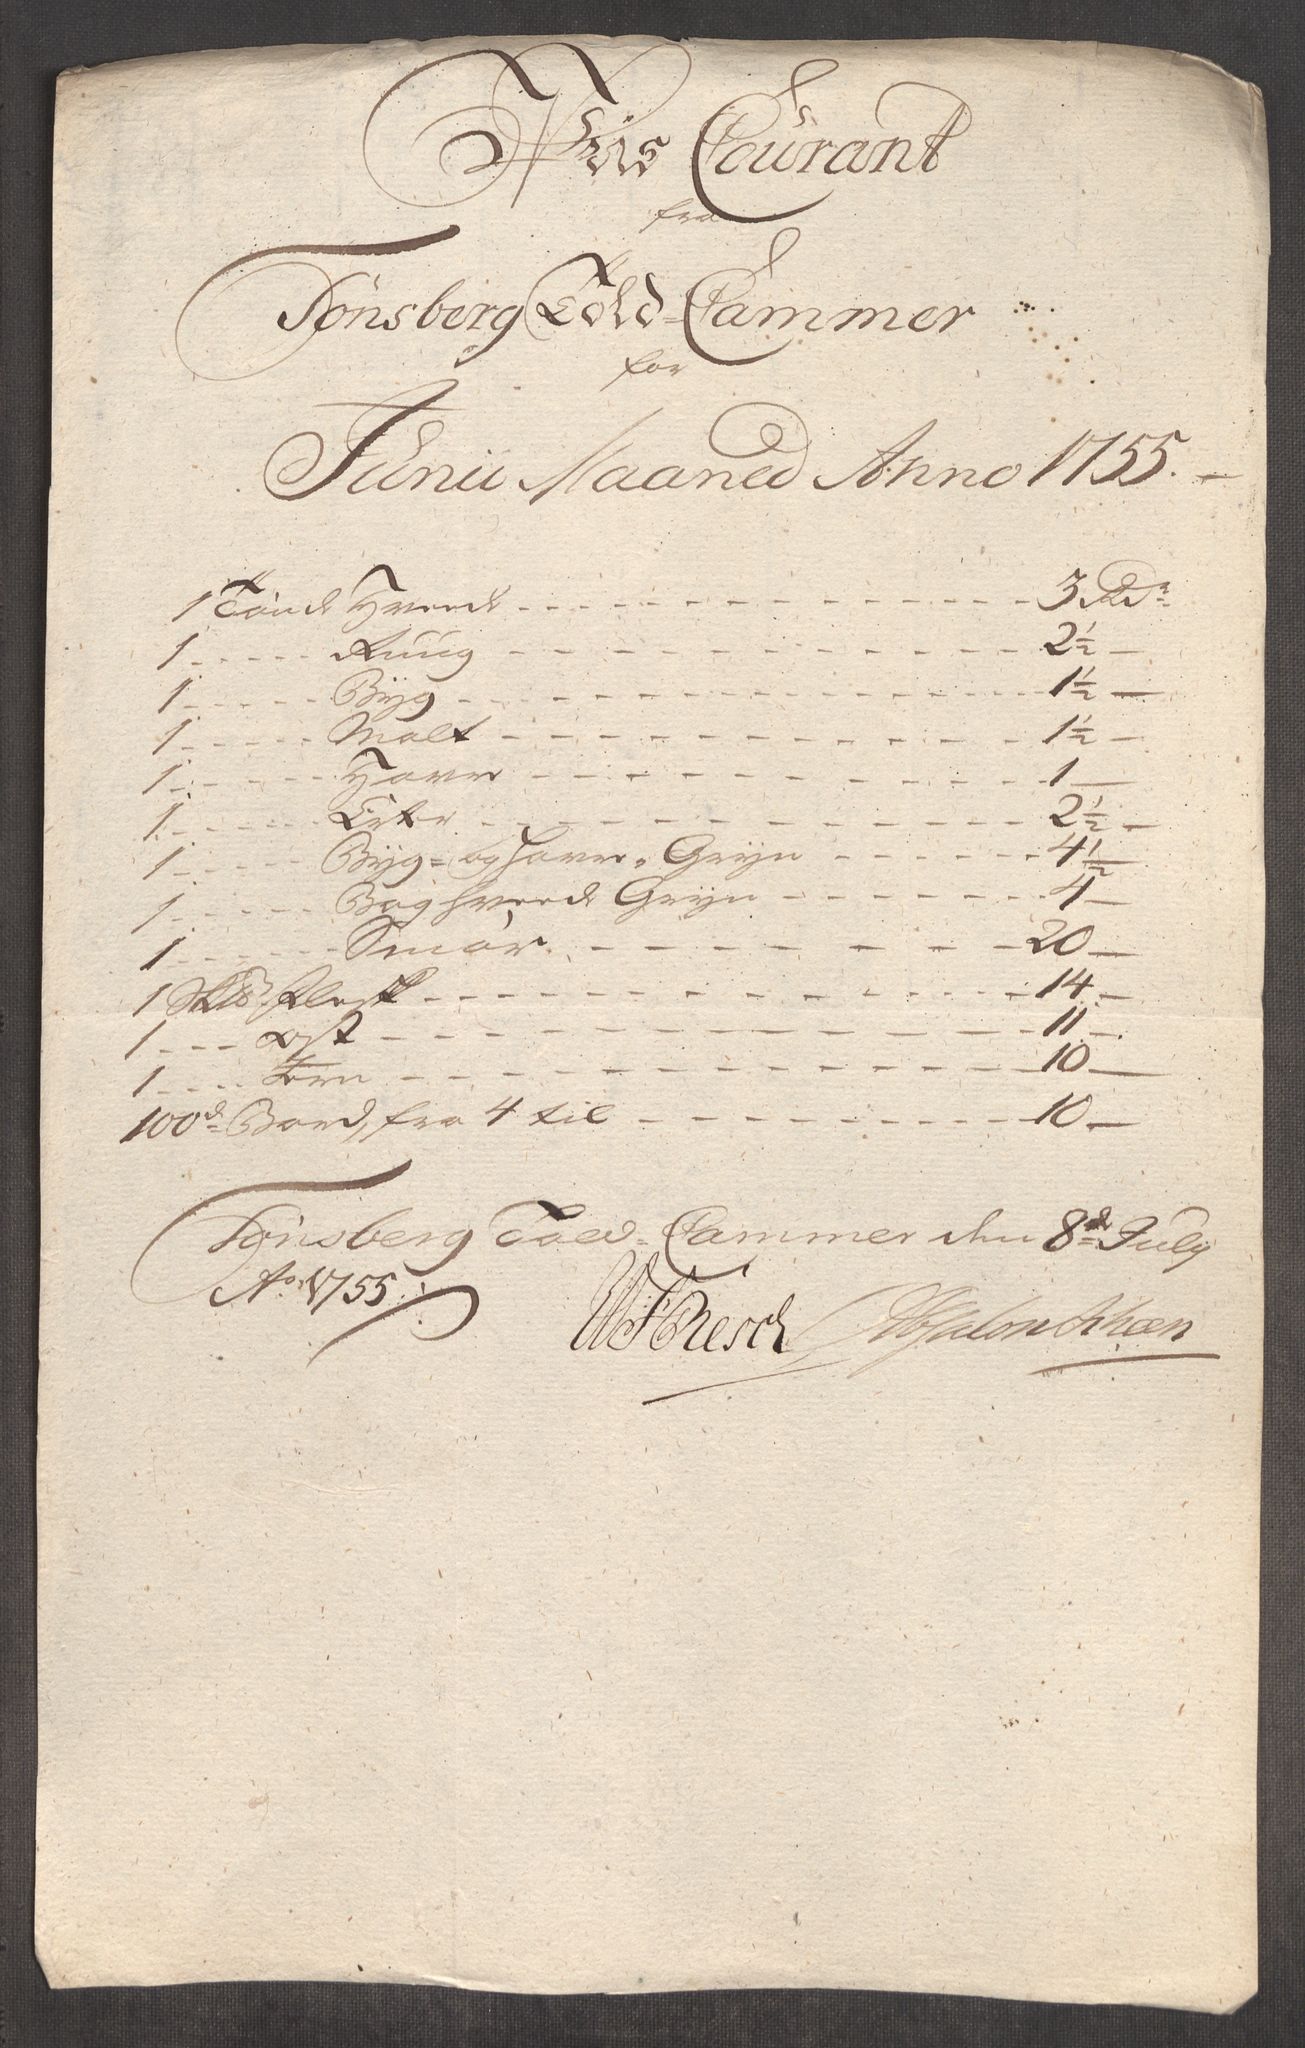 Priis Courant
fra
Tønsberg Told-Cammer
for
Junii Maaned Anno 1755.
1 Tønde Hveede 3 Rdr
1 Ruug 2½
1 Byg 1½
1 Malt 1½
1 Havre 1
1 Erter 2½
1 Byg- og Havre-Gryn 4½
1 Boghveede Gryn 4
1 Smør 20
1 Flesk 14
1 Ost 11
1 Jern 10
100d Bord, fra 4 til 10
Tønsberg Told-Cammer den 8de July
Ao 1755.